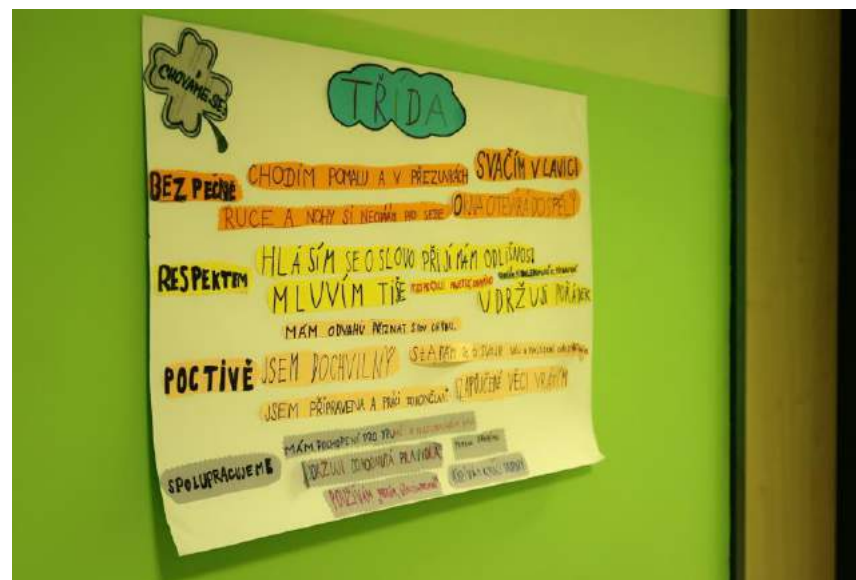 CHOVÁME SE
TŘÍDA
BEZPEČNĚ
CHODÍM POMALU A V PŘEZUVKÁCH
SVAČÍM V LAVICI
RUCE A NOHY SI NECHÁM PRO SEBE
OKNA OTEVÍRÁ DOSPĚLÝ
RESPEKTEM
HLÁSÍM SE O SLOVO
PŘIJÍMÁM ODLIŠNOSTI
MLUVÍM TIŠE
UDRŽUJI POŘÁDEK
MÁM ODVAHU PŘIZNAT SVOU CHYBU.
POCTIVĚ
JSEM DOCHVILNÝ
STARÁM SE O
JSEM PŘIPRAVENA A PRÁCI
ZAPŮJČENÉ VĚCI VRACÍM
SPOLUPRACUJEME
MÁM POCHOPENÍ PRO
UDRŽUJI DOHODNUTÁ PRAVIDLA
POUŽÍVÁM